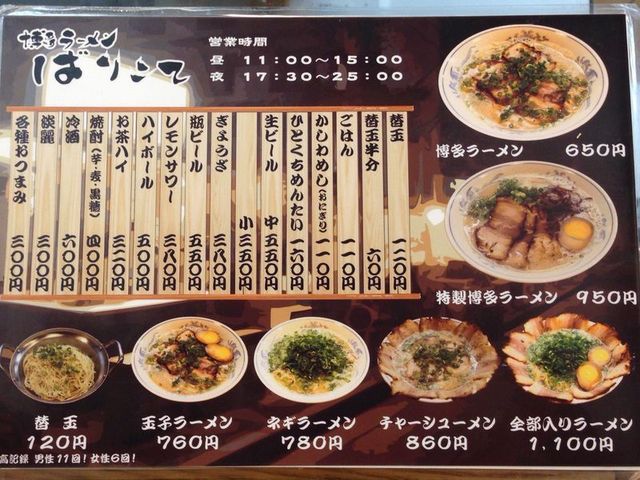 博多ラーメン
ばりこて
営業時間
昼 11:00～15:00
夜 17:30～25:00
替玉 一二〇円
替玉半分 六〇円
ごはん 一一〇円
かしわめし(おにぎり) 一一〇円
ひとくちめんたい 一六〇円
生ビール 中 五五〇円
小 三五〇円
ぎょうざ 三八〇円
瓶ビール 五五〇円
レモンサワー 三八〇円
ハイボール 五〇〇円
お茶ハイ 三二〇円
焼酎(芋・麦・黒糖) 四〇〇円
冷酒 六〇〇円
淡麗 三〇〇円
各種おつまみ 三〇〇円
博多ラーメン 650円
特製博多ラーメン 950円
替玉
120円
玉子ラーメン
760円
ネギラーメン
780円
チャーシューメン
860円
全部入りラーメン
1,100円
高記録 男性11回!女性6回!